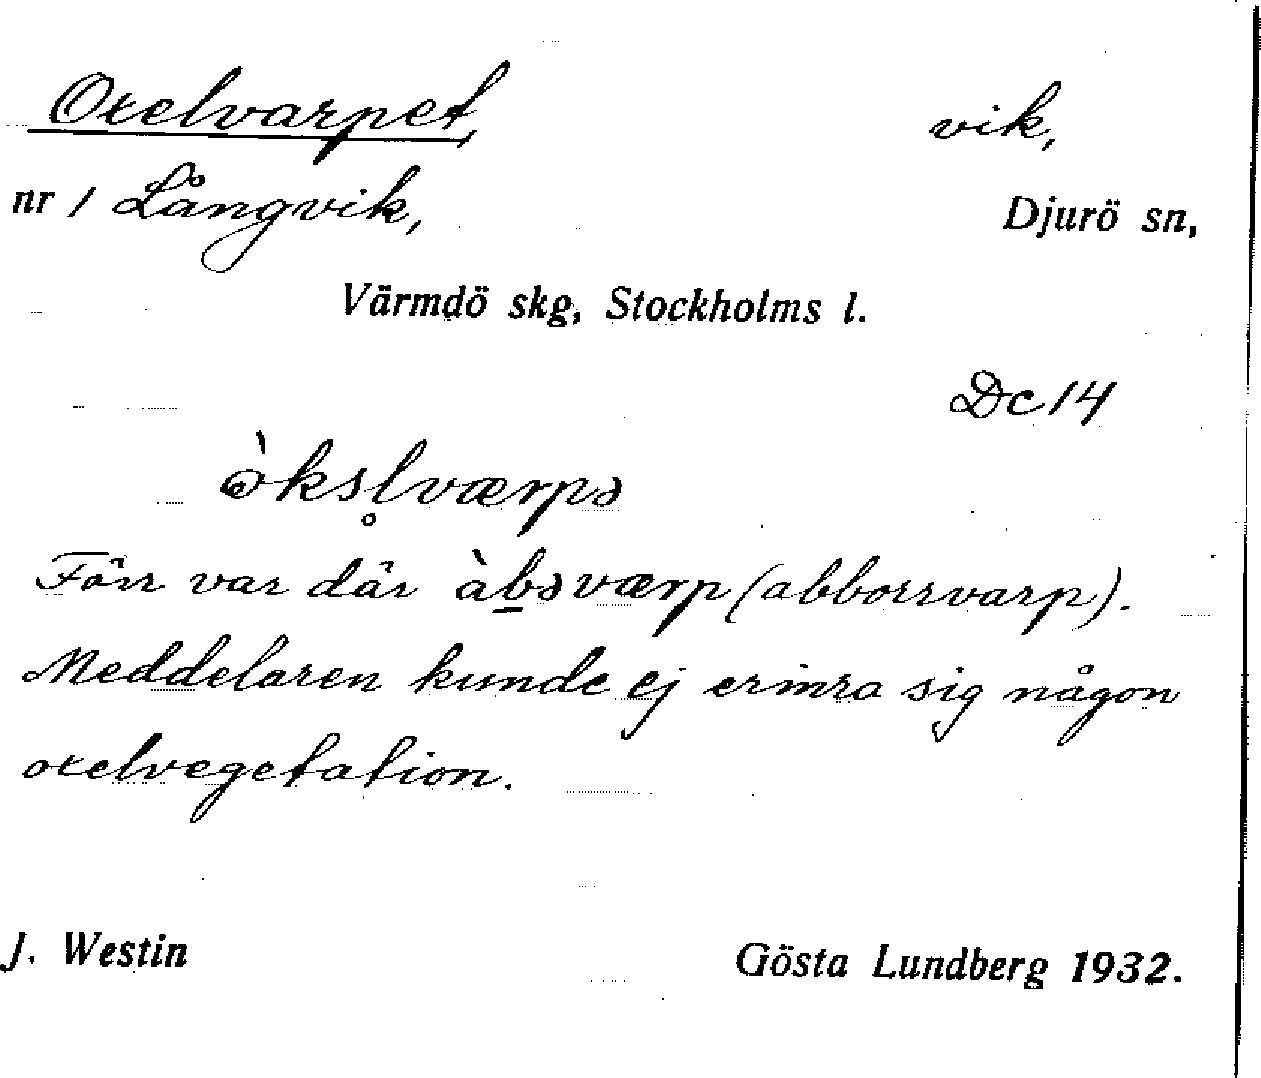 Oxelvarpet, vik,
nr 1 Långvik, Djurö sn,
Värmdö skg, Stockholms l.
Dc 14
òksl̥værpə
Förr var där àb̠əværp (abborrvarp).
Meddelaren kunde ej erinra sig någon
oxelvegetation.
J. Westin Gösta Lundberg 1932.